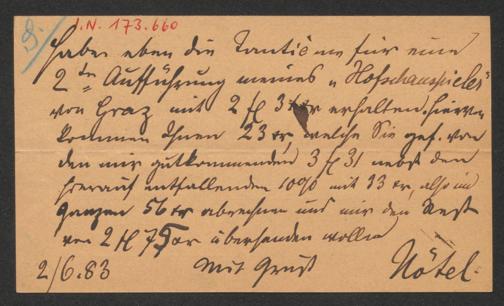 I.N. 173.660
habe eben die Tantième für eine
2te Aufführung meines „Hofschauspieler"
von Graz mit 2 fl 31 kr erhalten, hievon
kommen Ihnen 23 kr, welche Sie gef. von
den mir gutkommenden 3 fl 31 nebst den
hierauf entfallenden 10% mit 33 kr, also im
Ganzen 56 kr abrechnen und mir den Rest
von 2 fl 75 kr übersenden wollen
2/6.83 Mit Gruß Nötel